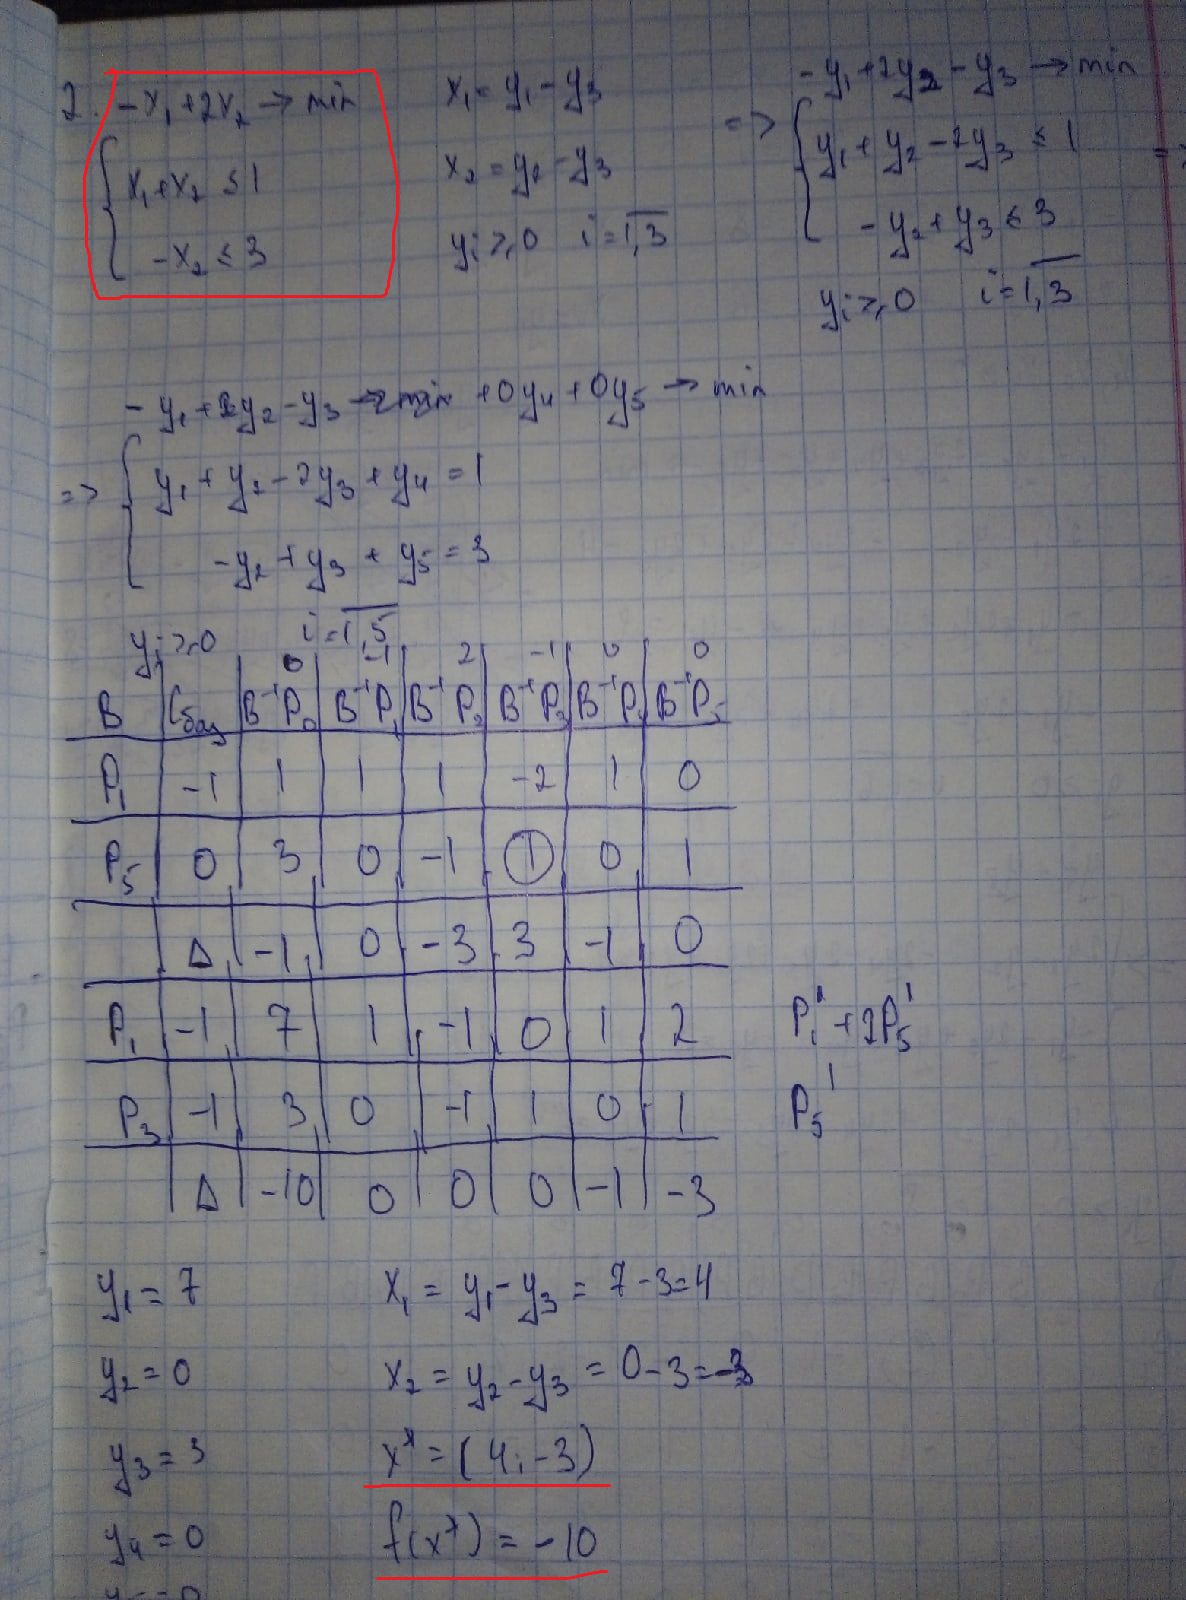 2. -x₁+2x₂ → min
x₁+x₂ ≤ 1
-x₂ ≤ 3
x₁ = y₁ - y₃
x₂ = y₂ - y₃
yᵢ ≥ 0 i = 1,3
=> -y₁+2y₂-y₃ → min
y₁+y₂-2y₃ ≤ 1 =>
-y₂+y₃ ≤ 3
yᵢ ≥ 0 i = 1,3
-y₁+2y₂-y₃ +0y₄+0y₅ → min
=> y₁+y₂-2y₃+y₄ = 1
-y₂+y₃+y₅ = 3
yᵢ ≥ 0 i = 1,5
0 -1 2 -1 0 0
B Cбаз B⁻¹P₀ B⁻¹P₁ B⁻¹P₂ B⁻¹P₃ B⁻¹P₄ B⁻¹P₅
P₁ -1 1 1 1 -2 1 0
P₅ 0 3 0 -1 1 0 1
Δ -1 0 -3 3 -1 0
P₁ -1 7 1 -1 0 1 2 P₁¹+2P₅¹
P₃ -1 3 0 -1 1 0 1 P₅¹
Δ -10 0 0 0 -1 -3
y₁ = 7 x₁ = y₁ - y₃ = 7-3=4
y₂ = 0 x₂ = y₂ - y₃ = 0-3=-3
y₃ = 3 x* = (4; -3)
y₄ = 0 f(x*) = -10